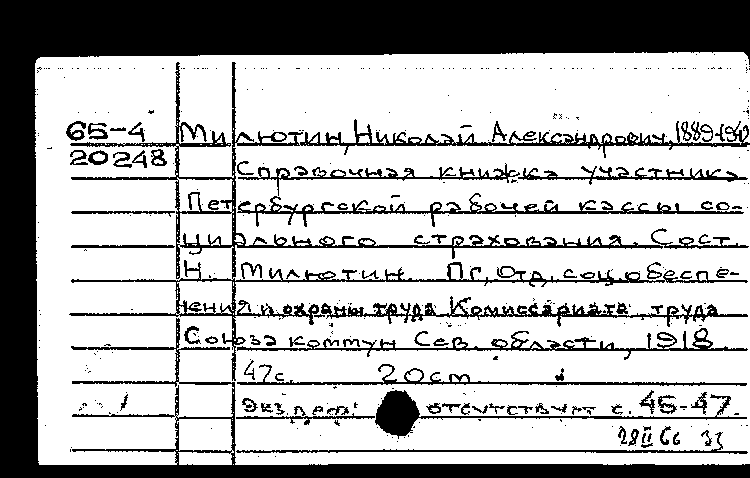 65-4 Милютин, Николай Александрович, 1889-1942
20248 Справочная книжка участника
Петербургской рабочей кассы со-
циального страхования. Сост.
Н. Милютин. Пг, Отд. соц. обеспе-
чения и охраны труда Комиссариата труда
Союза коммун Сев. области, 1918.
47с. 20 cm
Экз. деф.: отсутствует с. 45-47.
28 II 66